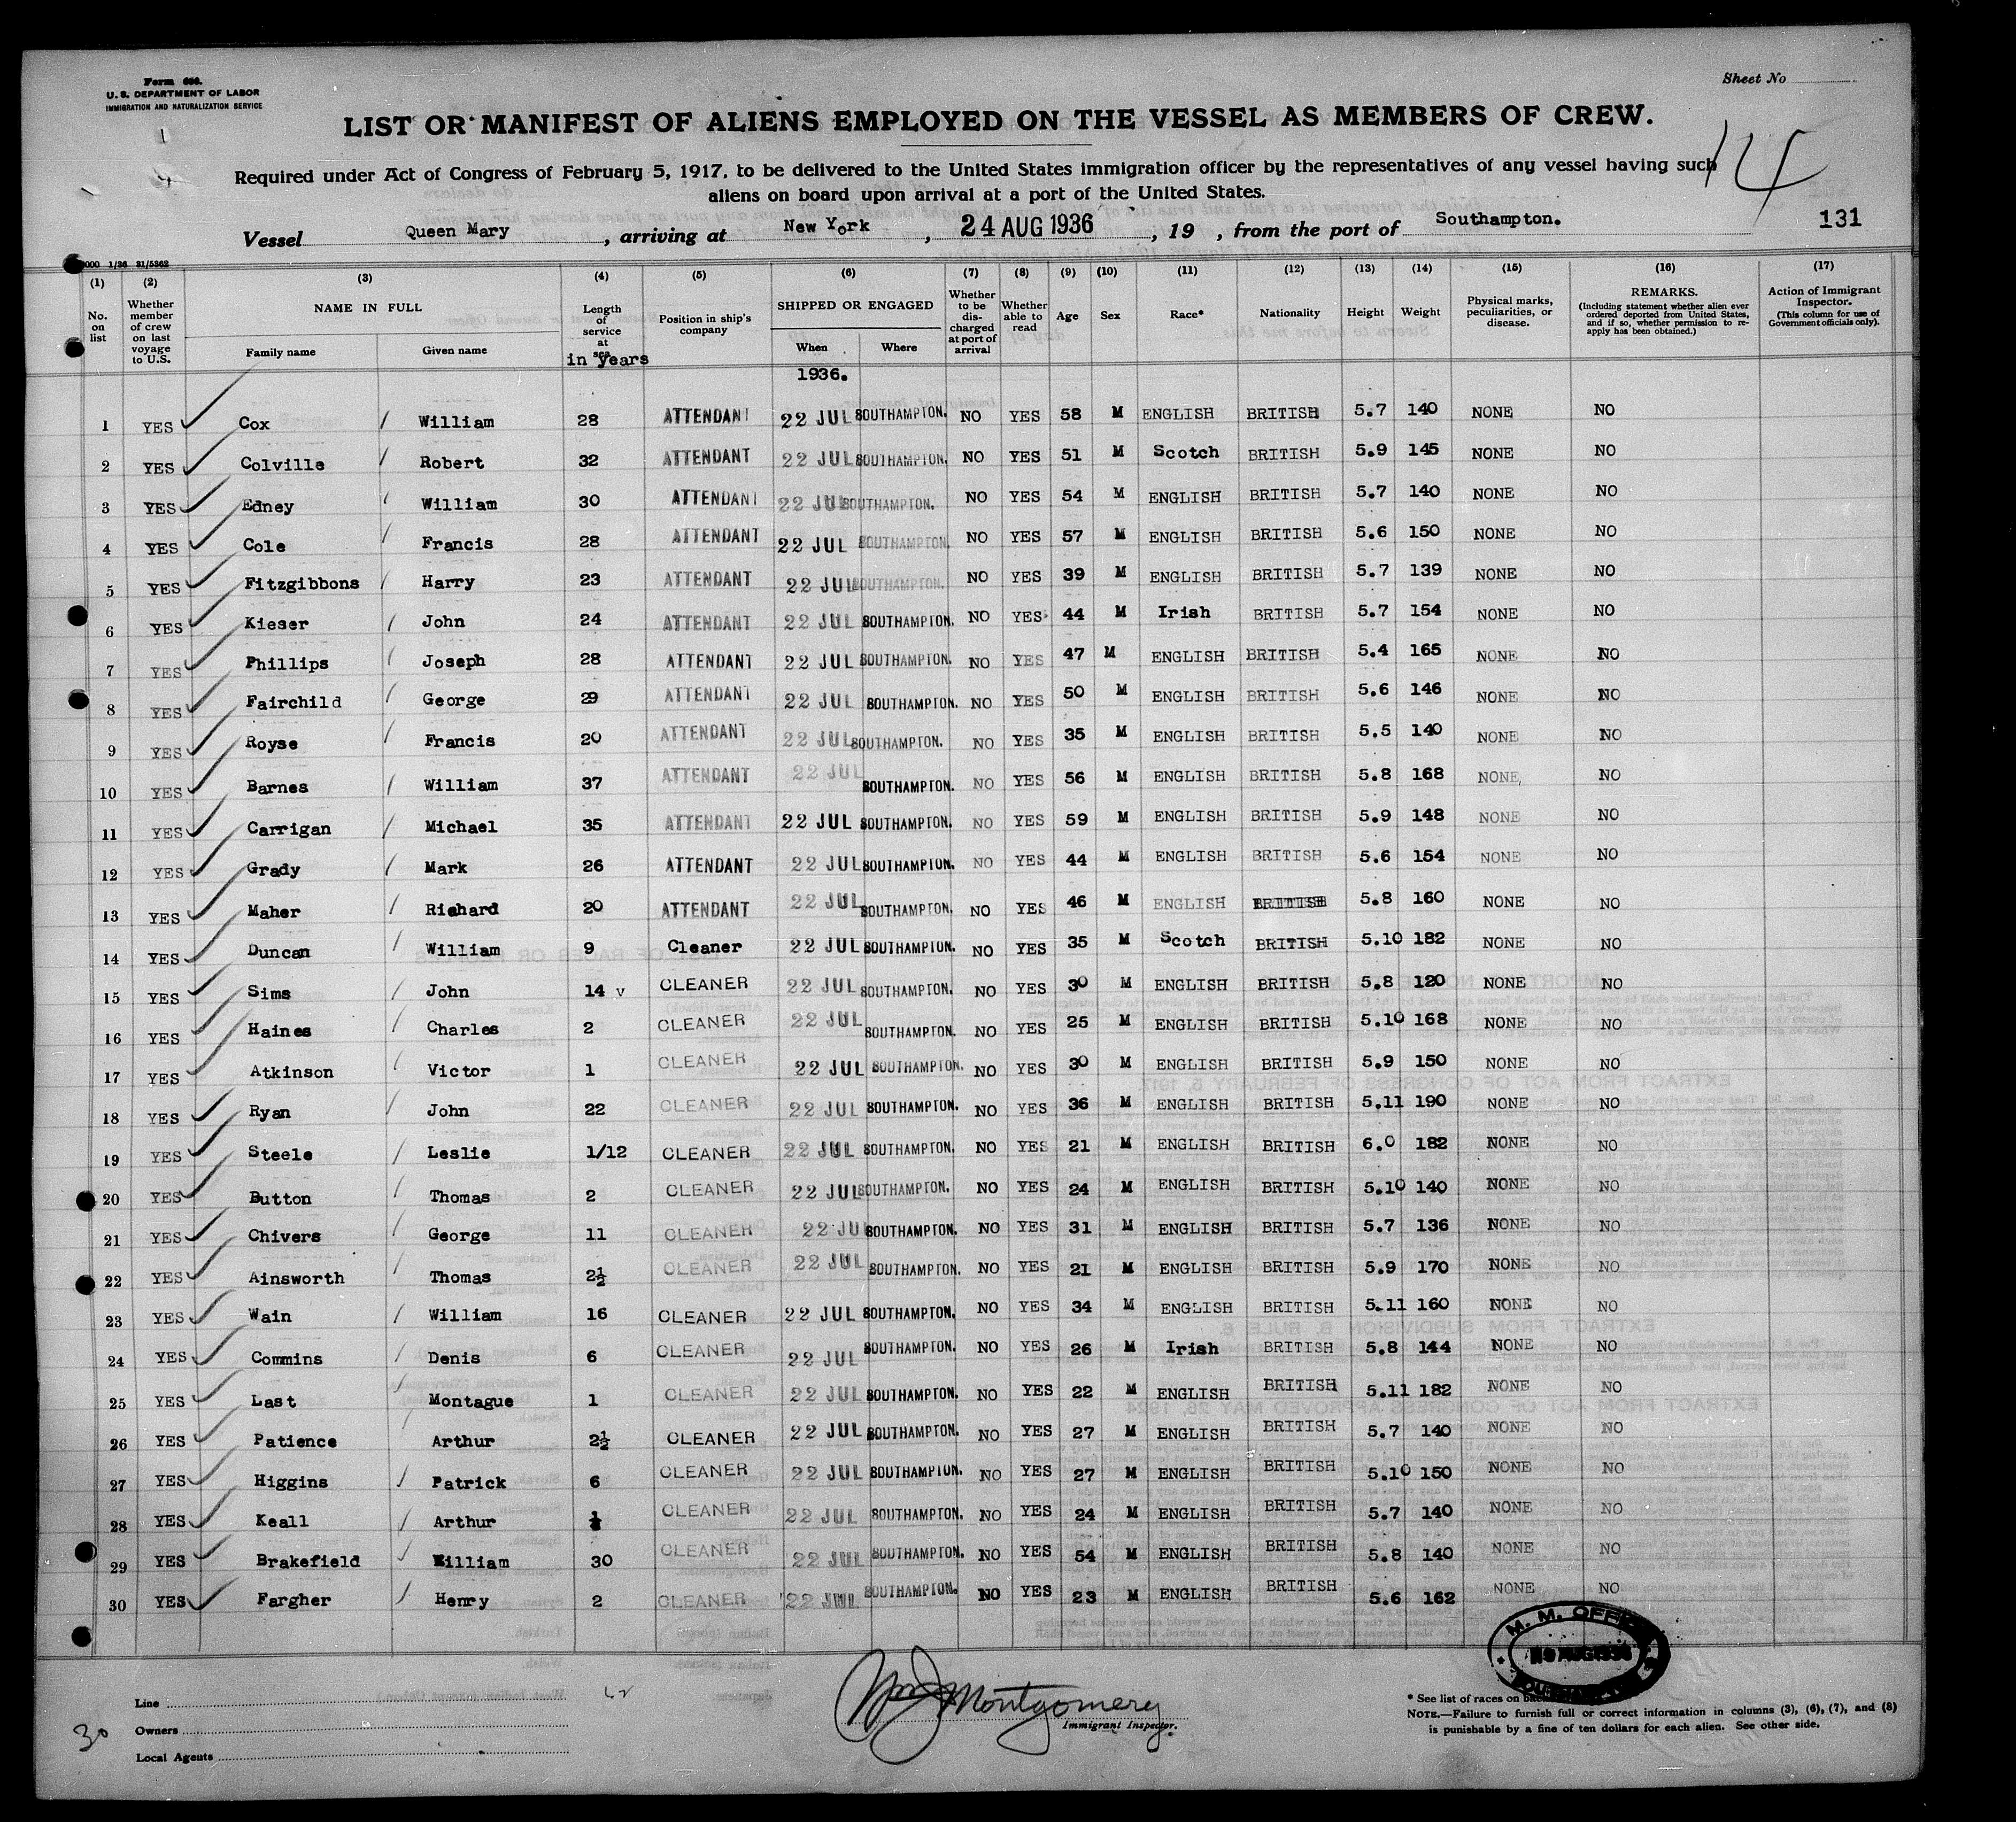 Form 686.
U. S. DEPARTMENT OF LABOR
IMMIGRATION AND NATURALIZATION SERVICE
Sheet No
LIST OR MANIFEST OF ALIENS EMPLOYED ON THE VESSEL AS MEMBERS OF CREW.
14
Required under Act of Congress of February 5, 1917, to be delivered to the United States immigration officer by the representatives of any vessel having such
aliens on board upon arrival at a port of the United States.
Vessel Queen Mary, arriving at New York, 24 AUG 1936, 19 , from the port of Southampton. 131
(1) (2) (3) (4) (5) (6) (7) (8) (9) (10) (11) (12) (13) (14) (15) (16) (17)
No. on list
Whether member of crew on last voyage to U.S.
NAME IN FULL
Family name
Given name
Length of service at sea
in years
Position in ship's company
SHIPPED OR ENGAGED
When
Where
Whether to be discharged at port of arrival
Whether able to read
Age
Sex
Race*
Nationality
Height
Weight
Physical marks, peculiarities, or disease.
REMARKS.
(Including statement whether alien ever ordered deported from United States, and if so, whether permission to reapply has been obtained.)
Action of Immigrant Inspector.
(This column for use of Government officials only).
1936.
1 YES Cox William 28 ATTENDANT 22 JUL SOUTHAMPTON. NO YES 58 M ENGLISH BRITISH 5.7 140 NONE NO
2 YES Colville Robert 32 ATTENDANT 22 JUL SOUTHAMPTON. NO YES 51 M Scotch BRITISH 5.9 145 NONE NO
3 YES Edney William 30 ATTENDANT 22 JUL SOUTHAMPTON. NO YES 54 M ENGLISH BRITISH 5.7 140 NONE NO
4 YES Cole Francis 28 ATTENDANT 22 JUL SOUTHAMPTON. NO YES 57 M ENGLISH BRITISH 5.6 150 NONE NO
5 YES Fitzgibbons Harry 23 ATTENDANT 22 JUL SOUTHAMPTON. NO YES 39 M ENGLISH BRITISH 5.7 139 NONE NO
6 YES Kieser John 24 ATTENDANT 22 JUL SOUTHAMPTON. NO YES 44 M Irish BRITISH 5.7 154 NONE NO
7 YES Phillips Joseph 28 ATTENDANT 22 JUL SOUTHAMPTON. NO YES 47 M ENGLISH BRITISH 5.4 165 NONE NO
8 YES Fairchild George 29 ATTENDANT 22 JUL SOUTHAMPTON. NO YES 50 M ENGLISH BRITISH 5.6 146 NONE NO
9 YES Royse Francis 20 ATTENDANT 22 JUL SOUTHAMPTON. NO YES 35 M ENGLISH BRITISH 5.5 140 NONE NO
10 YES Barnes William 37 ATTENDANT 22 JUL SOUTHAMPTON. NO YES 56 M ENGLISH BRITISH 5.8 168 NONE NO
11 YES Carrigan Michael 35 ATTENDANT 22 JUL SOUTHAMPTON. NO YES 59 M ENGLISH BRITISH 5.9 148 NONE NO
12 YES Grady Mark 26 ATTENDANT 22 JUL SOUTHAMPTON. NO YES 44 M ENGLISH BRITISH 5.6 154 NONE NO
13 YES Maher Richard 20 ATTENDANT 22 JUL SOUTHAMPTON. NO YES 46 M ENGLISH BRITISH 5.8 160 NONE NO
14 YES Duncan William 9 Cleaner 22 JUL SOUTHAMPTON. NO YES 35 M Scotch BRITISH 5.10 182 NONE NO
15 YES Sims John 14 v CLEANER 22 JUL SOUTHAMPTON. NO YES 30 M ENGLISH BRITISH 5.8 120 NONE NO
16 YES Haines Charles 2 CLEANER 22 JUL SOUTHAMPTON. NO YES 25 M ENGLISH BRITISH 5.10 168 NONE NO
17 YES Atkinson Victor 1 CLEANER 22 JUL SOUTHAMPTON. NO YES 30 M ENGLISH BRITISH 5.9 150 NONE NO
18 YES Ryan John 22 CLEANER 22 JUL SOUTHAMPTON. NO YES 36 M ENGLISH BRITISH 5.11 190 NONE NO
19 YES Steele Leslie 1/12 CLEANER 22 JUL SOUTHAMPTON. NO YES 21 M ENGLISH BRITISH 6.0 182 NONE NO
20 YES Button Thomas 2 CLEANER 22 JUL SOUTHAMPTON. NO YES 24 M ENGLISH BRITISH 5.10 140 NONE NO
21 YES Chivers George 11 CLEANER 22 JUL SOUTHAMPTON. NO YES 31 M ENGLISH BRITISH 5.7 136 NONE NO
22 YES Ainsworth Thomas 2½ CLEANER 22 JUL SOUTHAMPTON. NO YES 21 M ENGLISH BRITISH 5.9 170 NONE NO
23 YES Wain William 16 CLEANER 22 JUL SOUTHAMPTON. NO YES 34 M ENGLISH BRITISH 5.11 160 NONE NO
24 YES Commins Denis 6 CLEANER 22 JUL SOUTHAMPTON. NO YES 26 M Irish BRITISH 5.8 144 NONE NO
25 YES Last Montague 1 CLEANER 22 JUL SOUTHAMPTON. NO YES 22 M ENGLISH BRITISH 5.11 182 NONE NO
26 YES Patience Arthur 2½ CLEANER 22 JUL SOUTHAMPTON. NO YES 27 M ENGLISH BRITISH 5.7 140 NONE NO
27 YES Higgins Patrick 6 CLEANER 22 JUL SOUTHAMPTON. NO YES 27 M ENGLISH BRITISH 5.10 150 NONE NO
28 YES Keall Arthur CLEANER 22 JUL SOUTHAMPTON. NO YES 24 M ENGLISH BRITISH 5.7 140 NONE NO
29 YES Brakefield William 30 CLEANER 22 JUL SOUTHAMPTON. NO YES 54 M ENGLISH BRITISH 5.8 140 NONE NO
30 YES Fargher Henry 2 CLEANER 22 JUL SOUTHAMPTON. NO YES 23 M ENGLISH BRITISH 5.6 162 NONE NO
M. M. OFFICE
AUG 1936
Line
Owners
Local Agents
30
Wm J Montgomery
Immigrant Inspector.
* See list of races on back
NOTE.—Failure to furnish full or correct information in columns (3), (6), (7), and (8)
is punishable by a fine of ten dollars for each alien. See other side.